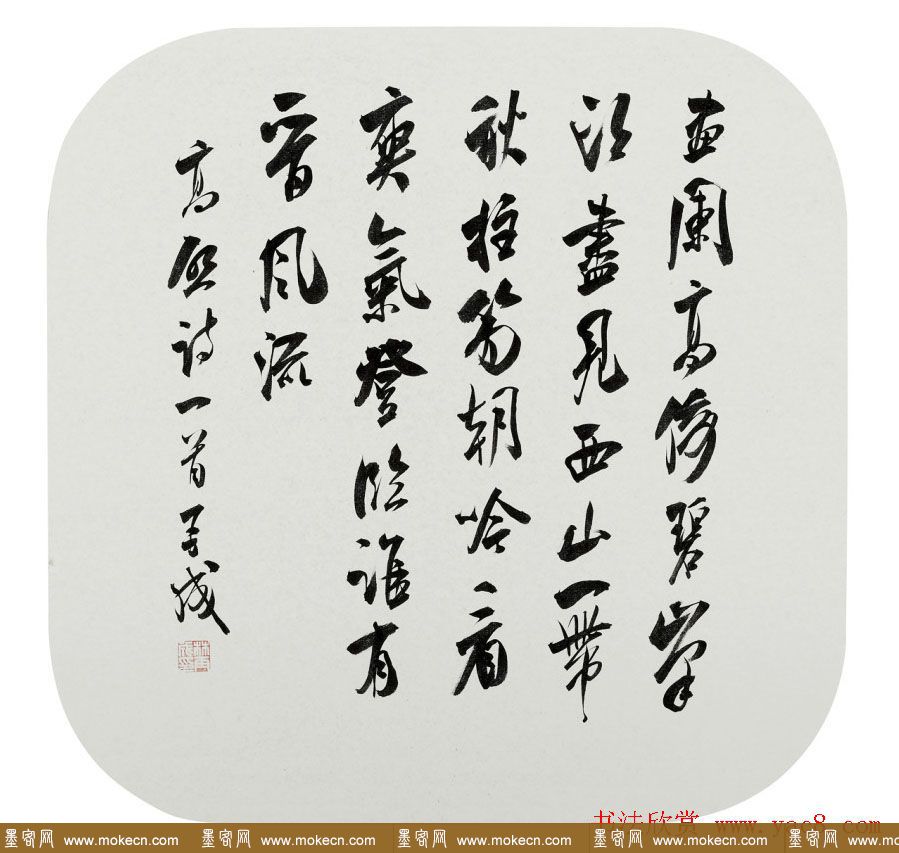 畫闌高倚碧峯
頭盡見西山一帶
秋拄笏朝吟看
爽氣登臨誰有
晉風流
高啟詩一首 成
书法欣赏 www.yac8.com
墨客网 www.mokecn.com 墨客网 www.mokecn.com 墨客网 www.mokecn.com 墨客网 www.mokecn.com